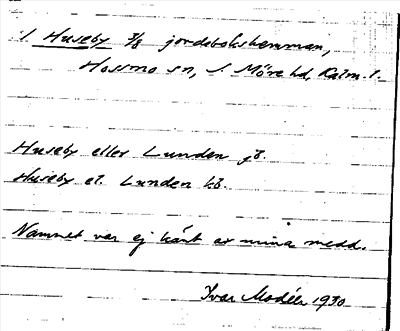 1. Huseby 3/8 jordebokshemman,
Hossmo sn, S. Möre hd, Kalm. l.
Huseby eller Lunden jb.
Huseby el. Lunden kb.
Namnet var ej känt av mina medd.
Ivar Modéer 1930